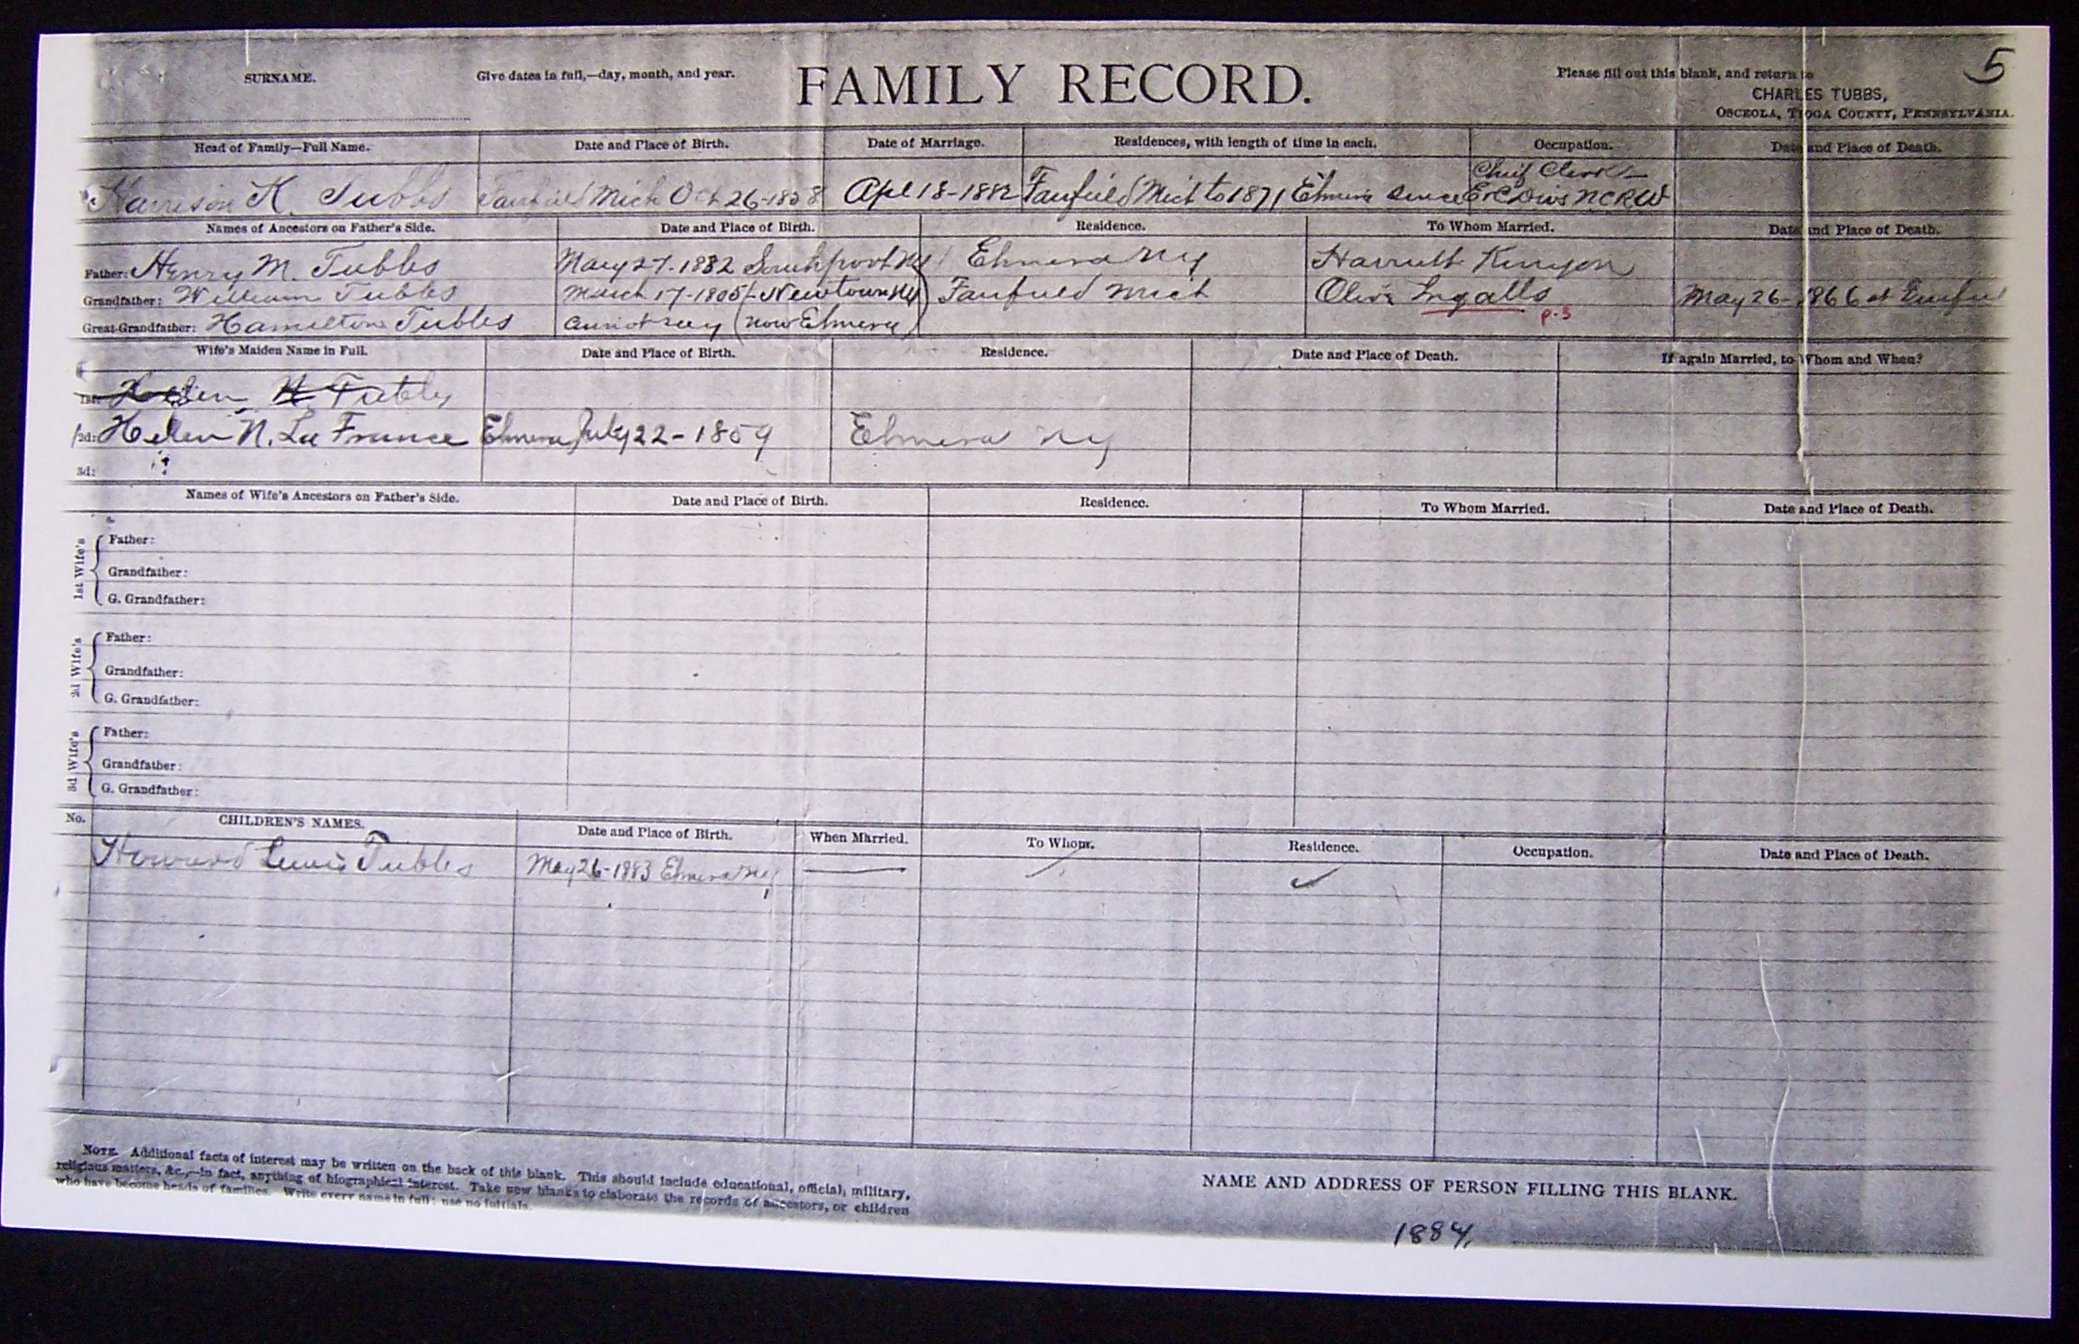 5
SURNAME. Give dates in full,—day, month, and year. FAMILY RECORD. Please fill out this blank, and return to
CHARLES TUBBS,
OSCEOLA, TIOGA COUNTY, PENNSYLVANIA.
Head of Family—Full Name. Date and Place of Birth. Date of Marriage. Residences, with length of time in each. Occupation. Date and Place of Death.
Chief Clerk
Harrison K. Tubbs Fairfield Mich Oct 26-1858 Apl 18-1882 Fairfield Mich to 1871 Elmira since Divs NCRW
Names of Ancestors on Father's Side. Date and Place of Birth. Residence. To Whom Married. Date and Place of Death.
Father: Henry M. Tubbs May 27-1832 Southport NY Elmira NY Harriett Kenyon
Grandfather: William Tubbs March 17-1805 Newtown NY Fairfield Mich Olive Ingalls May 26-1866 at
Great-Grandfather: Hamilton Tubbs (now Elmira) p.3
Wife's Maiden Name in Full. Date and Place of Birth. Residence. Date and Place of Death. If again Married, to Whom and When?
1st: Helen N Tubbs
2d: Helen N. La France Elmira July 22-1859 Elmira NY
3d:
Names of Wife's Ancestors on Father's Side. Date and Place of Birth. Residence. To Whom Married. Date and Place of Death.
1st Wife's
Father:
Grandfather:
G. Grandfather:
2d Wife's
Father:
Grandfather:
G. Grandfather:
3d Wife's
Father:
Grandfather:
G. Grandfather:
No. CHILDREN'S NAMES. Date and Place of Birth. When Married. To Whom. Residence. Occupation. Date and Place of Death.
Howard Lewis Tubbs May 26-1883 Elmira NY
NOTE. Additional facts of interest may be written on the back of this blank. This should include educational, official, military,
religious matters, &c.,—in fact, anything of biographical interest. Take new blanks to elaborate the records of ancestors, or children
who have become heads of families. Write every name in full; use no initials.
NAME AND ADDRESS OF PERSON FILLING THIS BLANK.
1884,